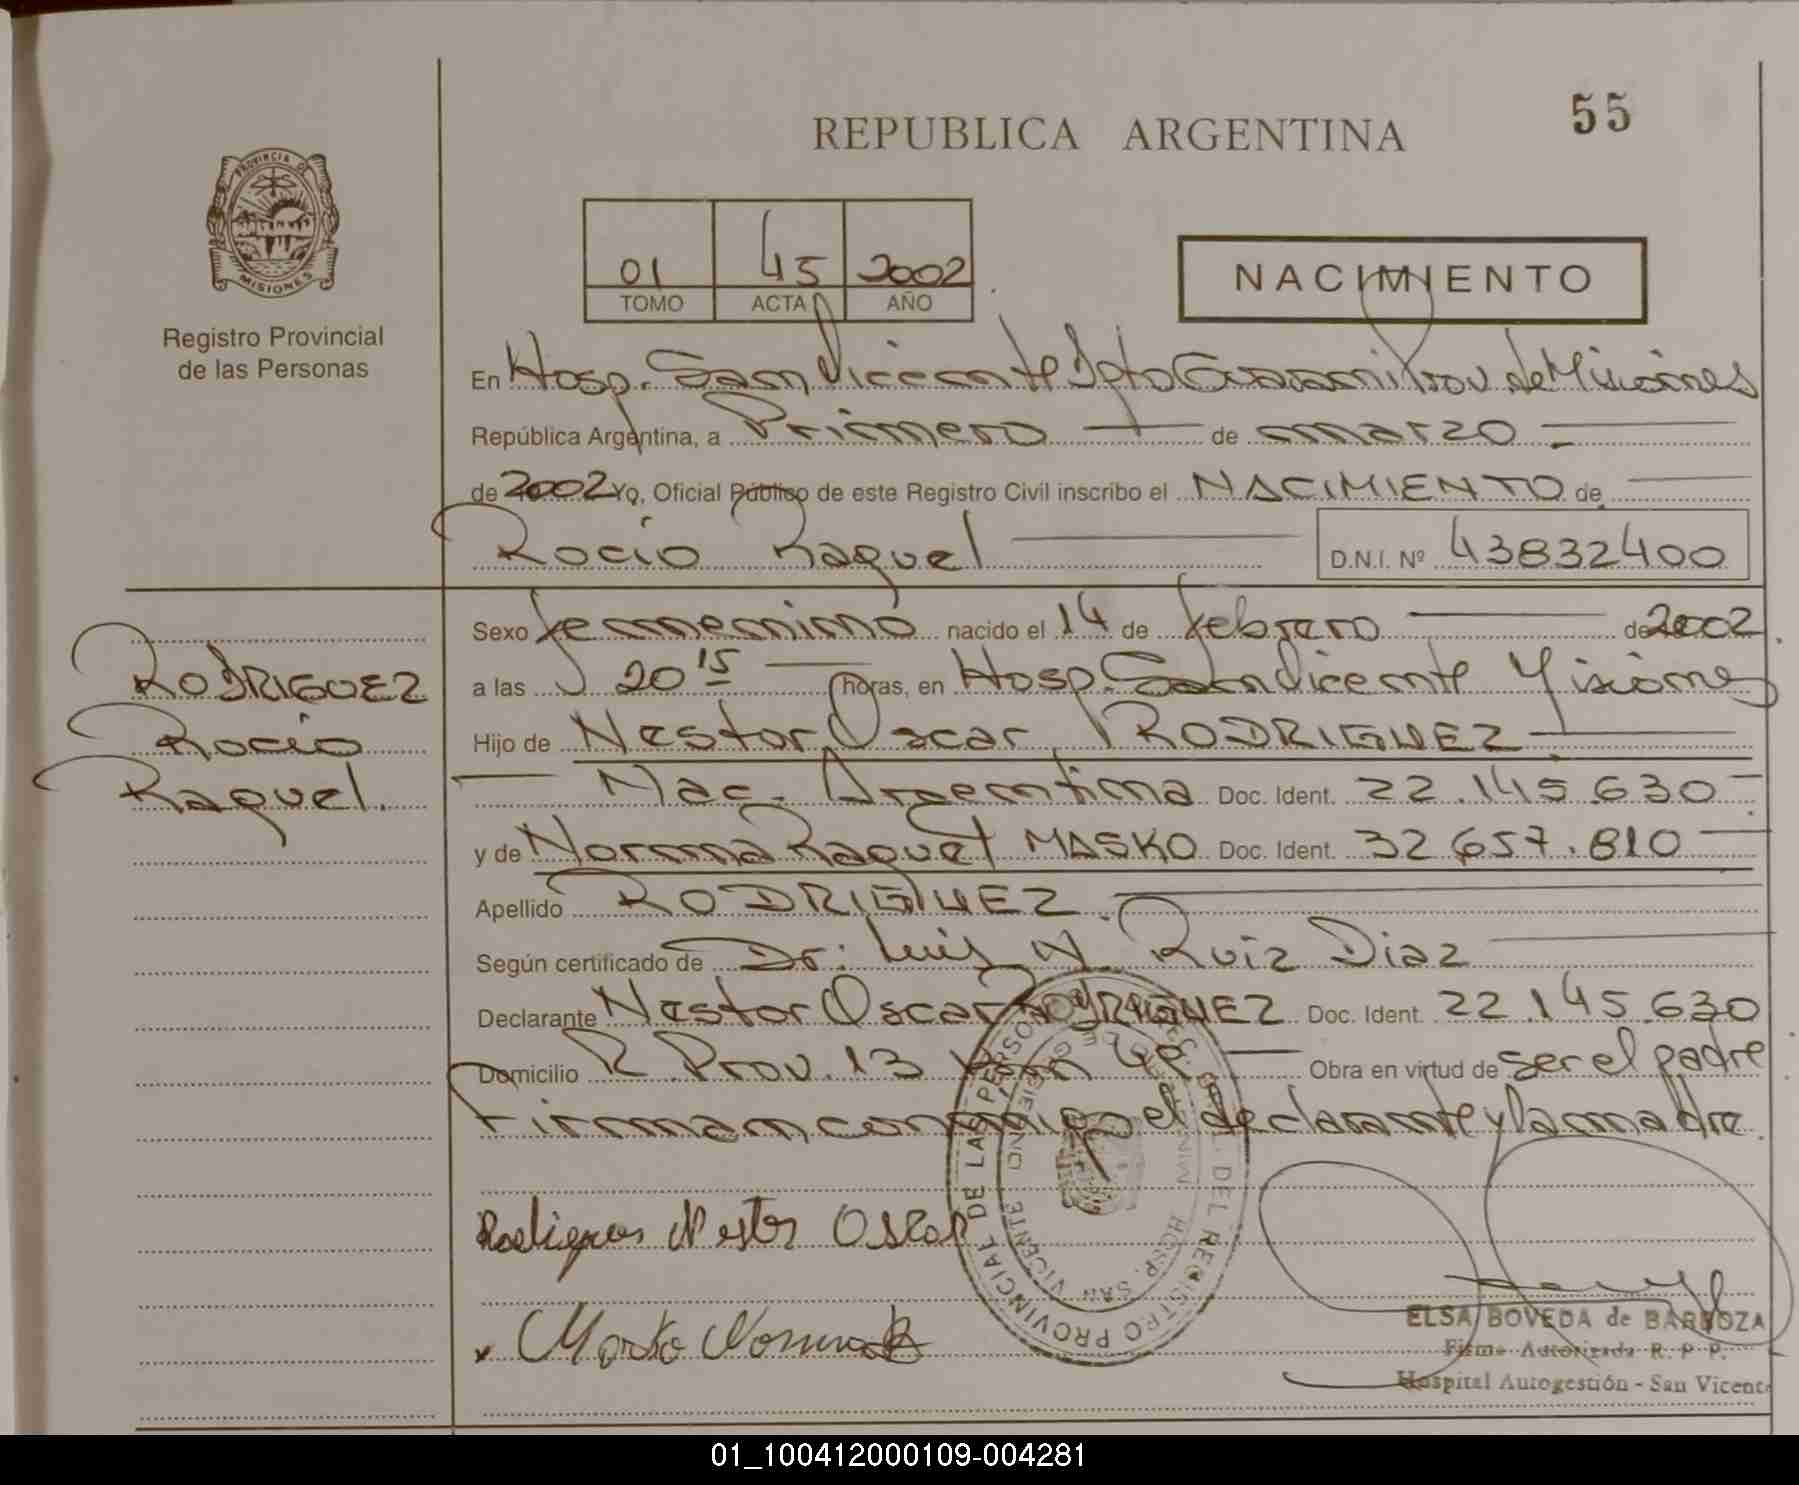 55
REPUBLICA ARGENTINA
PROVINCIA DE
MISIONES
Registro Provincial
de las Personas
01 45 2002
TOMO ACTA AÑO
NACIMIENTO
En Hosp. San Vicente Dpto Guarani Prov de Misiones
República Argentina, a Primero de marzo
de 2002 Yo, Oficial Público de este Registro Civil inscribo el NACIMIENTO de
Rocio Raquel D.N.I. Nº 43832400
Sexo femenino nacido el 14 de febrero de 2002
RODRIGUEZ
Rocio
Raquel.
a las 20 15 horas, en Hosp. San Vicente Misiones
Hijo de Nestor Oscar RODRIGUEZ
Nac. Argentina Doc. Ident. 22.145.630
y de Norma Raquel MASKO Doc. Ident. 32 657.810
Apellido RODRIGUEZ
Según certificado de Dr. Luis A. Ruiz Diaz
Declarante Nestor Oscar RODRIGUEZ Doc. Ident. 22.145.630
Domicilio R. Prov. 13 Obra en virtud de ser el padre
Firman conmigo el declarante y la madre.
Rodriguez Nestor Oscar
Masko Norma R
DEL REGISTRO PROVINCIAL DE LAS PERSONAS
HOSP. SAN VICENTE
ELSA BOVEDA de BARBOZA
Firma Autorizada R. P. P.
Hospital Autogestión - San Vicente
01_100412000109-004281